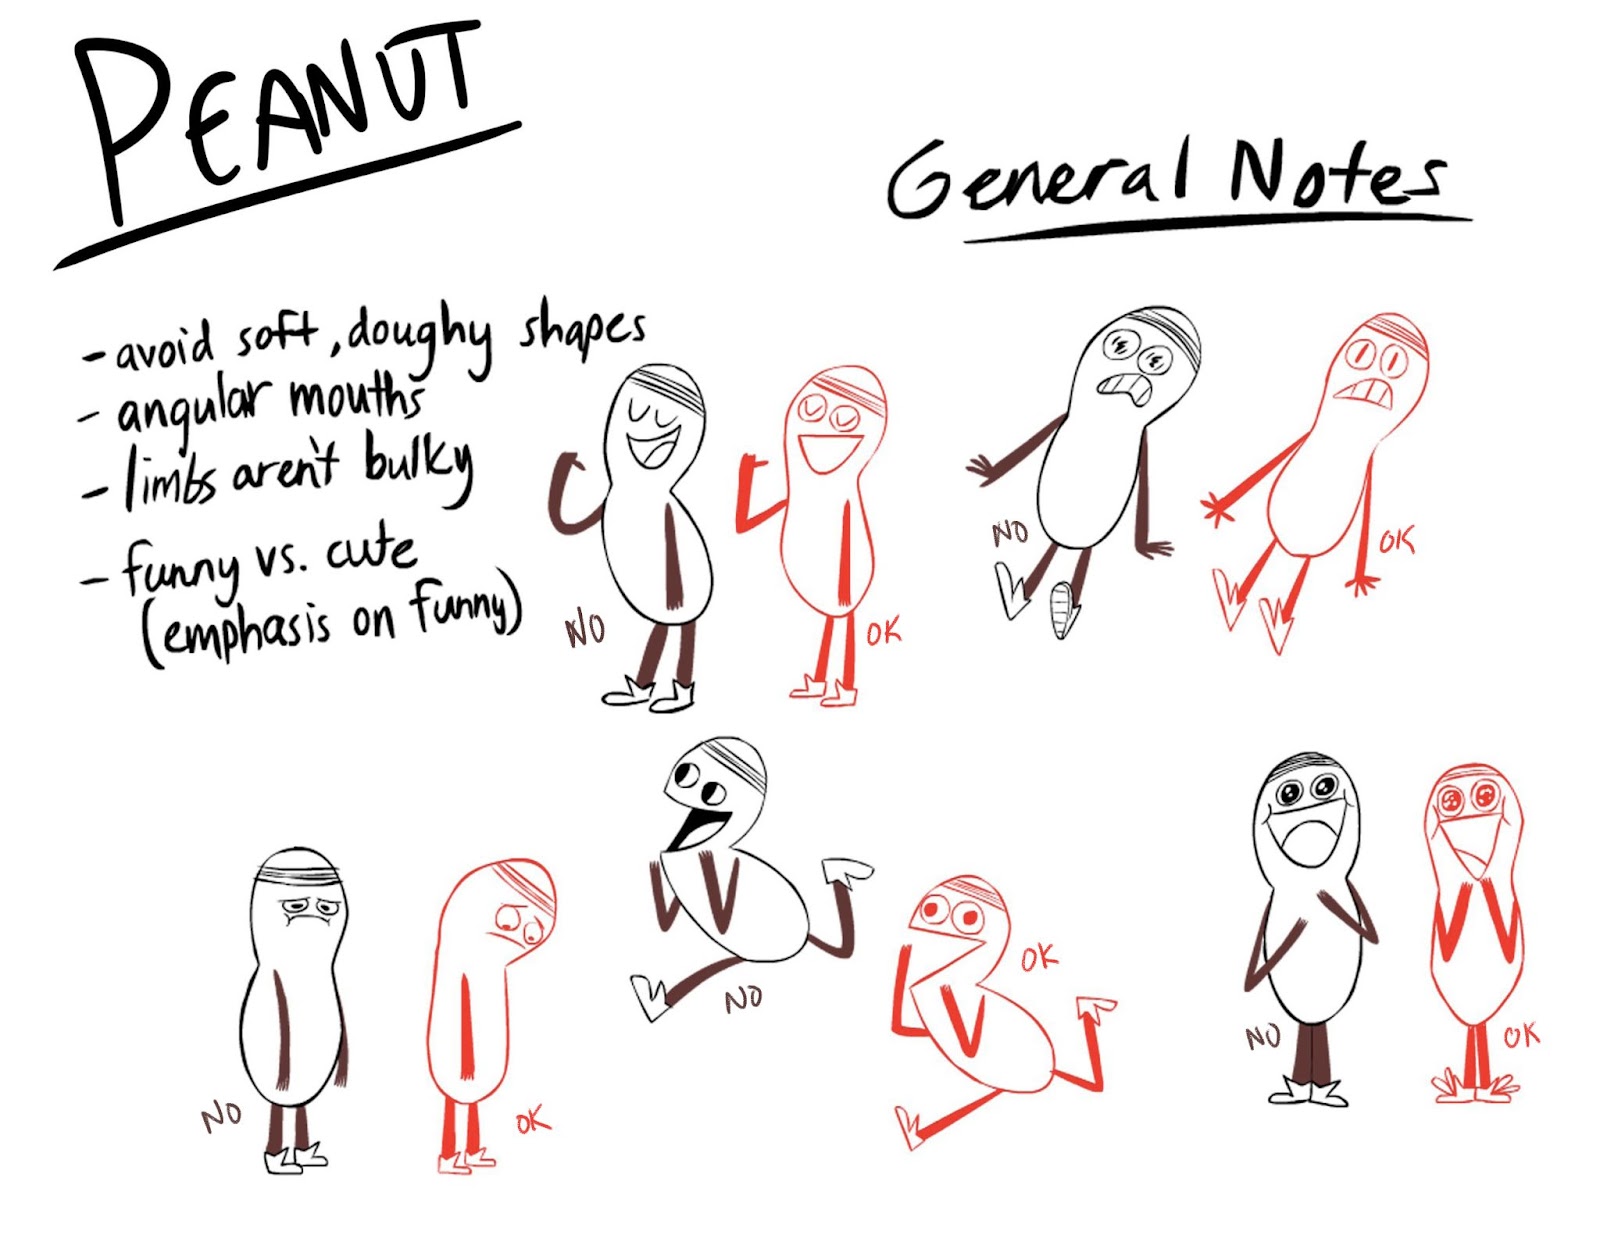 PEANUT
General Notes
- avoid soft, doughy shapes
- angular mouths
- limbs aren't bulky
- funny vs. cute
(emphasis on funny)
NO
OK
NO
OK
NO
OK
NO
OK
NO
OK